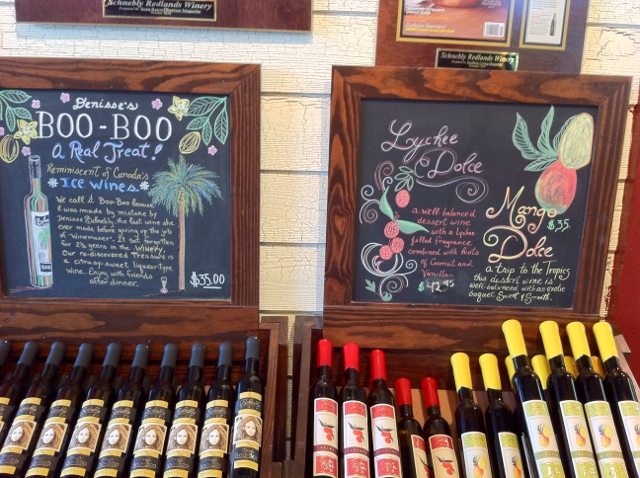 Schnebly Redlands Winery
Schnebly Redlands Winery
Denisse's
BOO-BOO
A Real Treat!
Reminiscent of Canada's
ICE WINES
We call it Boo-Boo because
it was made by mistake by
Denisse Schnebly, the last wine she
ever made before giving up the job
of "Winemaker". It sat forgotten
for 2½ years in the WINERY.
Our re-discovered Treasure is
a citrusy-sweet liqueur-type
wine. Enjoy with friends
after dinner.
$35.00
Lychee
Dolce
a well-balanced
dessert wine
with a Lychee
filled fragrance
combined with hints
of Coconut and
Vanilla
Mango
$35.
Dolce
a trip to the Tropics
this dessert wine is
well-balanced with an exotic
Smooth.